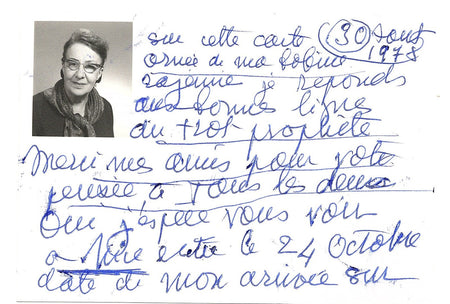 sur cette carte (30) août
ornée de ma bobine 1978
je réponds
aux bonnes lignes
du trot prophète
Merci mes amis pour votre
pensée, à tous les deux
Oui j'espère vous voir
à entre le 24 Octobre
date de mon arrivée sur